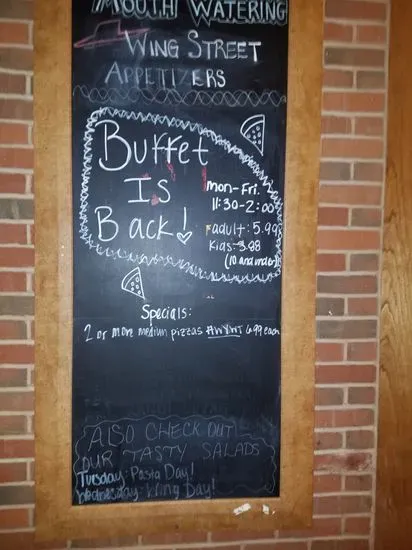 MOUTH WATERING
WING STREET
APPETIZERS
Buffet
Is
Back!
mon-Fri.
11:30-2:00
adult: 5.99
Kids-3.98
(10 and under)
Specials:
2 or more medium pizzas #WYWT 6.99 each
ALSO CHECK OUT
OUR TASTY SALADS
Tuesday: Pasta Day!
Wednesday-Wing Day!